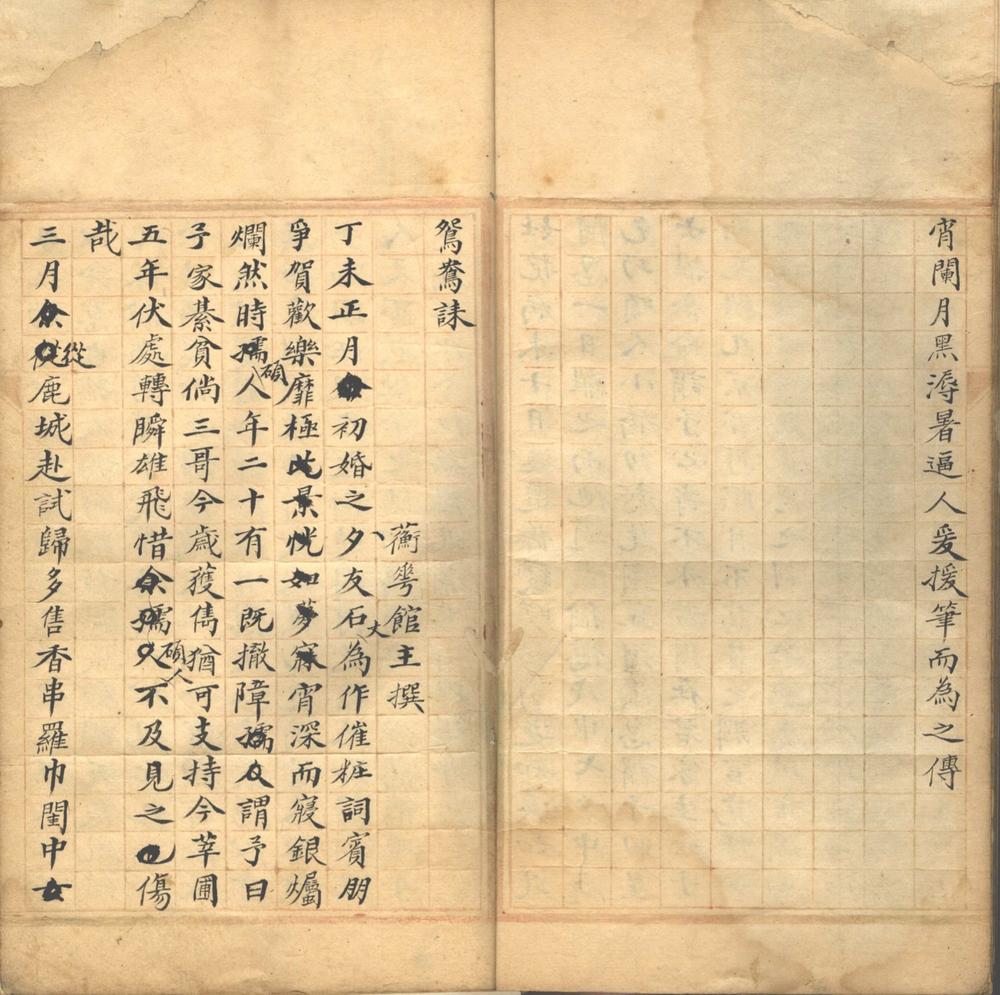 宵闌月黑溽暑逼人爰援筆而為之傳
鴛鴦誄
蘅華館主撰
丁未正月初婚之夕友石為作催粧詞賓朋
爭賀歡樂靡極此景恍如夢寐宵深而寢銀爥
爛然時碩人年二十有一既撤障孺人謂予曰
予家綦貧倘三哥今歲獲雋猶可支持今莘圃
五年伏處轉瞬雄飛惜碩人不及見之傷
哉
三月從鹿城赴試歸多售香串羅巾閨中女